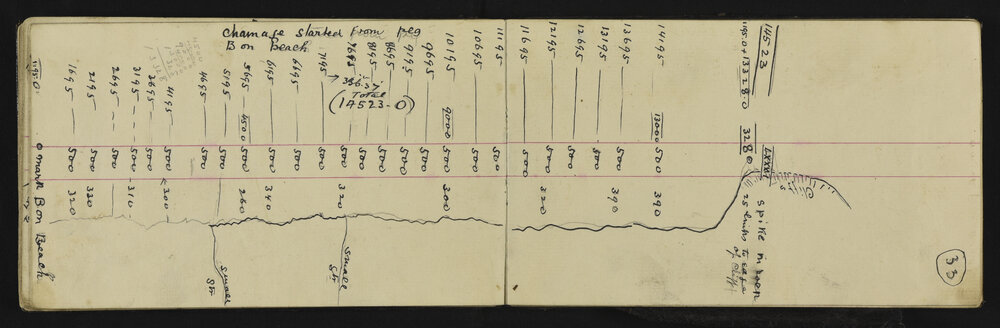 Chainage started from peg
B on Beach
11195.0
1695 500 320
2195 500 320
2695 500
3195 500 310
3695 500
4195 500 300
4695 500
5195 500
5695 4500 500 260
6195 500 340
6695 500
7195 500
7695 500 320
8195 500
8695 500
9195 500
9695 500
10195 9000 500 300
10695 500
11195 500
11695 500
12195 500 320
12695 500
13195 500
13695 500 390
14195 13000 500 390
Total
(14523.0)
14523
328.0
LXXXI
Cliffs
spike in
25 links to edge
of cliff
small
str
small
str
0 mark B on Beach
33